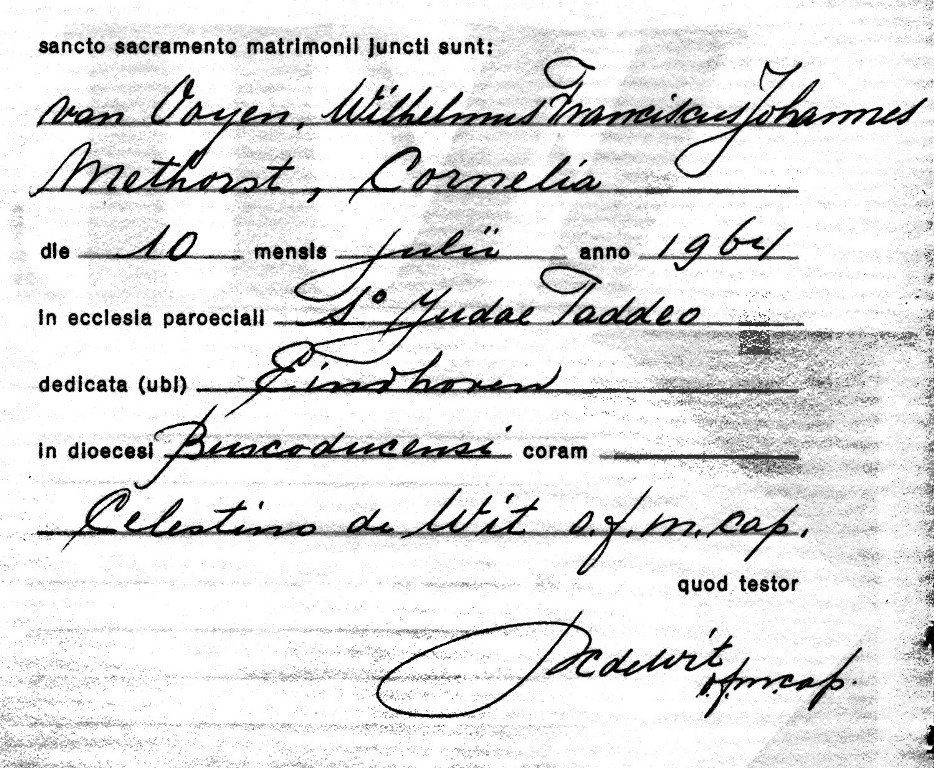 sancto sacramento matrimonii juncti sunt:
van Ooyen, Wilhelmus Franciscus Johannes
Methorst, Cornelia
die 10 mensis Julii anno 1964
in ecclesia paroeciali So Judae Taddeo
dedicata (ubi) Eindhoven
in dioecesi Buscoducensi coram
Celestino de Wit o.f.m.cap.
quod testor
PC de Wit
o.f.m.cap.